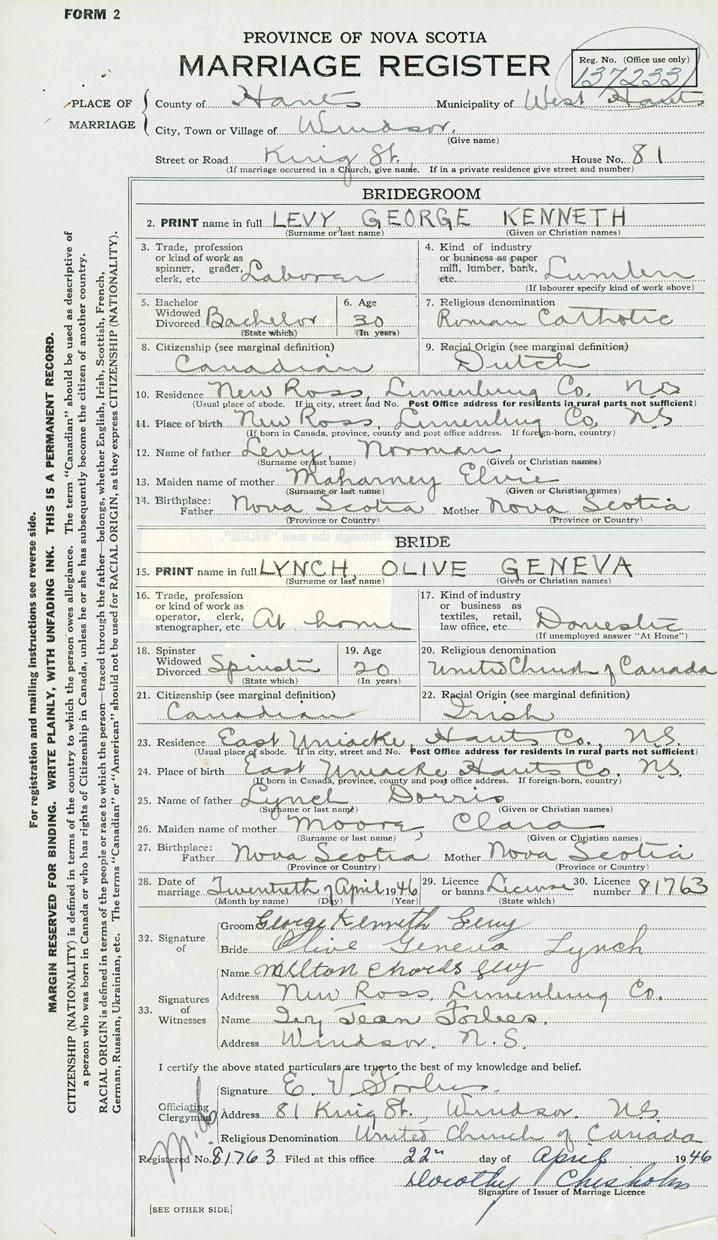 FORM 2
PROVINCE OF NOVA SCOTIA
MARRIAGE REGISTER
Reg. No. (Office use only)
137233
PLACE OF MARRIAGE
County of Hants Municipality of West Hants
City, Town or Village of Windsor,
(Give name)
Street or Road King St. House No. 81
(If marriage occurred in a Church, give name. If in a private residence give street and number)
BRIDEGROOM
2. PRINT name in full LEVY, GEORGE KENNETH
(Surname or last name) (Given or Christian names)
3. Trade, profession or kind of work as spinner, grader, clerk, etc. Laborer
4. Kind of industry or business as paper mill, lumber, bank, etc. Lumber
(If labourer specify kind of work above)
5. Bachelor Widowed Divorced Bachelor
(State which)
6. Age 30
(In years)
7. Religious denomination
Roman Catholic
8. Citizenship (see marginal definition)
Canadian
9. Racial Origin (see marginal definition)
Dutch
10. Residence New Ross, Lunenburg Co. N.S
(Usual place of abode. If in city, street and No. Post Office address for residents in rural parts not sufficient)
11. Place of birth New Ross, Lunenburg Co, N.S
(If born in Canada, province, county and post office address. If foreign-born, country)
12. Name of father Levy, Norman,
(Surname or last name) (Given or Christian names)
13. Maiden name of mother Maharney Elvie
(Surname or last name) (Given or Christian names)
14. Birthplace: Father Nova Scotia Mother Nova Scotia
(Province or Country) (Province or Country)
BRIDE
15. PRINT name in full LYNCH, OLIVE GENEVA
(Surname or last name) (Given or Christian names)
16. Trade, profession or kind of work as operator, clerk, stenographer, etc. At home
17. Kind of industry or business as textiles, retail, law office, etc. Domestic
(If unemployed answer "At Home")
18. Spinster Widowed Divorced Spinster
(State which)
19. Age 20
(In years)
20. Religious denomination
United Church of Canada
21. Citizenship (see marginal definition)
Canadian
22. Racial Origin (see marginal definition)
Irish
23. Residence East Uniacke, Hants Co., N.S.
(Usual place of abode. If in city, street and No. Post Office address for residents in rural parts not sufficient)
24. Place of birth East Uniacke Hants Co. N.S.
(If born in Canada, province, county and post office address. If foreign-born, country)
25. Name of father Lynch Dorris
(Surname or last name) (Given or Christian names)
26. Maiden name of mother Moore, Clara
(Surname or last name) (Given or Christian names)
27. Birthplace: Father Nova Scotia Mother Nova Scotia
(Province or Country) (Province or Country)
28. Date of marriage Twentieth of April 1946
(Month by name) (Day) (Year)
29. Licence or banns License
(State which)
30. Licence number 81763
32. Signature of
Groom George Kenneth Levy
Bride Olive Geneva Lynch
33. Signatures of Witnesses
Name Milton Levy
Address New Ross, Lunenburg Co.
Name Jean Forbes.
Address Windsor, N.S.
I certify the above stated particulars are true to the best of my knowledge and belief.
Officiating Clergyman
Signature E. V Forbes.
Address 81 King St., Windsor N.S
Religious Denomination United Church of Canada
Registered No. 81763 Filed at this office 22nd day of April 1946
Dorothy Chisholm
Signature of Issuer of Marriage Licence
[SEE OTHER SIDE]
For registration and mailing instructions see reverse side.
MARGIN RESERVED FOR BINDING. WRITE PLAINLY, WITH UNFADING INK. THIS IS A PERMANENT RECORD.
CITIZENSHIP (NATIONALITY) is defined in terms of the country to which the person owes allegiance. The term "Canadian" should be used as descriptive of
a person who was born in Canada or who has rights of Citizenship in Canada, unless he or she has subsequently become the citizen of another country.
RACIAL ORIGIN is defined in terms of the people or race to which the person—traced through the father—belongs, whether English, Irish, Scottish, French,
German, Russian, Ukrainian, etc. The terms "Canadian" or "American" should not be used for RACIAL ORIGIN, as they express CITIZENSHIP (NATIONALITY).